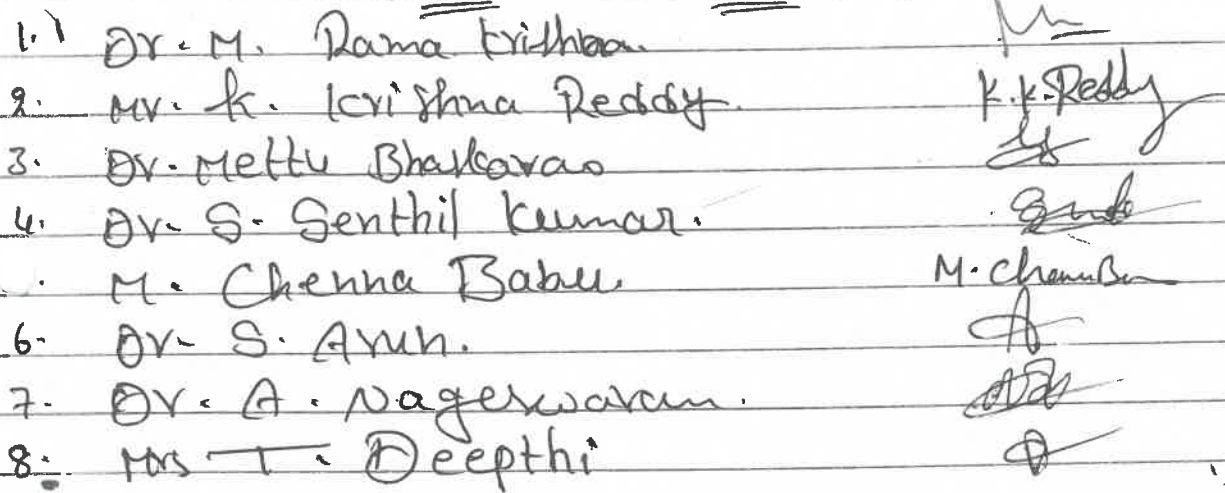 1.) Dr. M. Rama Krishna
2. Mr. K. Krishna Reddy. K.K.Reddy
3. Dr. Mettu Bhaskarao
4. Dr. S. Senthil Kumar.
M. Chenna Babu. M. Chenna
6. Dr. S. Arun.
7. Dr. A. Nageswaram.
8. Mrs T. Deepthi